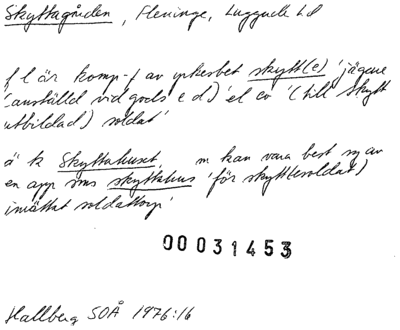 Skyttagården, Fleninge, Luggude hd
f l är komp-f av yrkesbet skytt(e) 'jägare
(anställd vid gods e d)' el ev '(till skytt
utbildad) soldat'
ä k Skyttahuset, m kan vara best sg av
en app sms skyttahus 'för skytt(esoldat)
inrättat soldattorp'
00031453
Hallberg SOÅ 1976:16